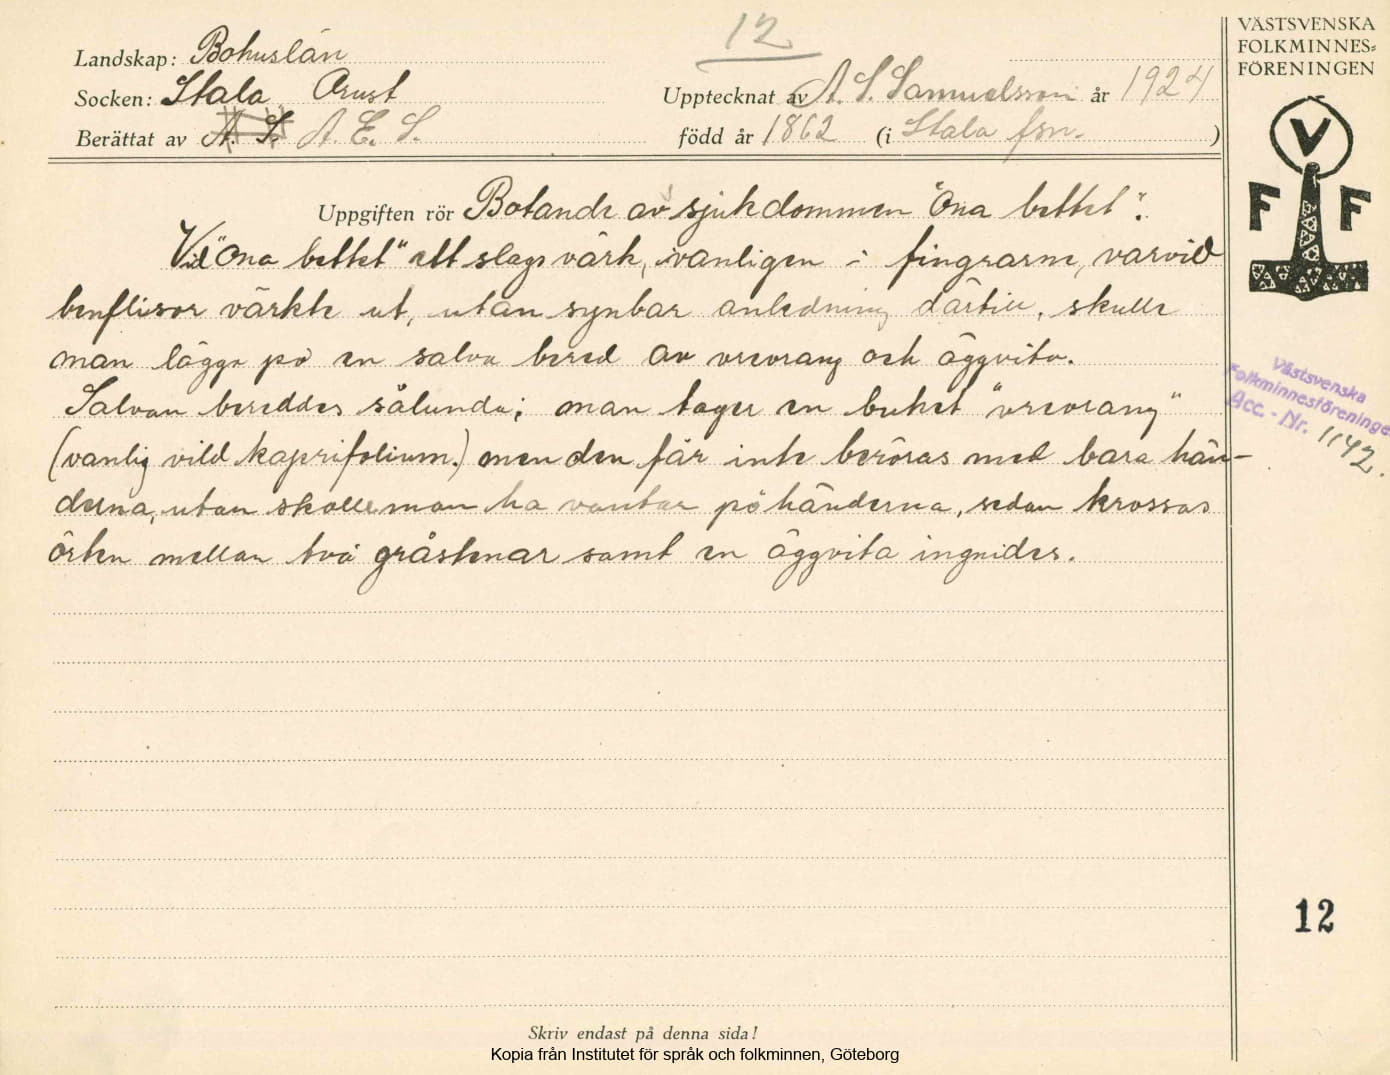 12
VÄSTSVENSKA
FOLKMINNES=
FÖRENINGEN
Landskap: Bohuslän
Socken: Stala Orust
Upptecknat av A. S. Samuelsson år 1924
Berättat av A. S. A. E. S.
född år 1862 (i Stala fsn. )
V
F F
Uppgiften rör Botande av sjukdommen "Ona bettet".
Vid "Ona bettet" ett slags värk, vanligen i fingrarne, varvid
benflisor värkte ut, utan synbar anledning därtill, skulle
man lägga på en salva bered av vrevrang och äggvita.
Salvan bereddes sålunda; man tager en buket "vrevrang"
(vanlig vild kaprifolium.) men den får inte beröras med bara hän-
derna, utan skulle man ha vantar på händerna, sedan krossas
örten mellan två gråstenar samt en äggvita ingnides.
Västsvenska
Folkminnesföreningen
Acc. - Nr. 1142.
12
Skriv endast på denna sida!
Kopia från Institutet för språk och folkminnen, Göteborg